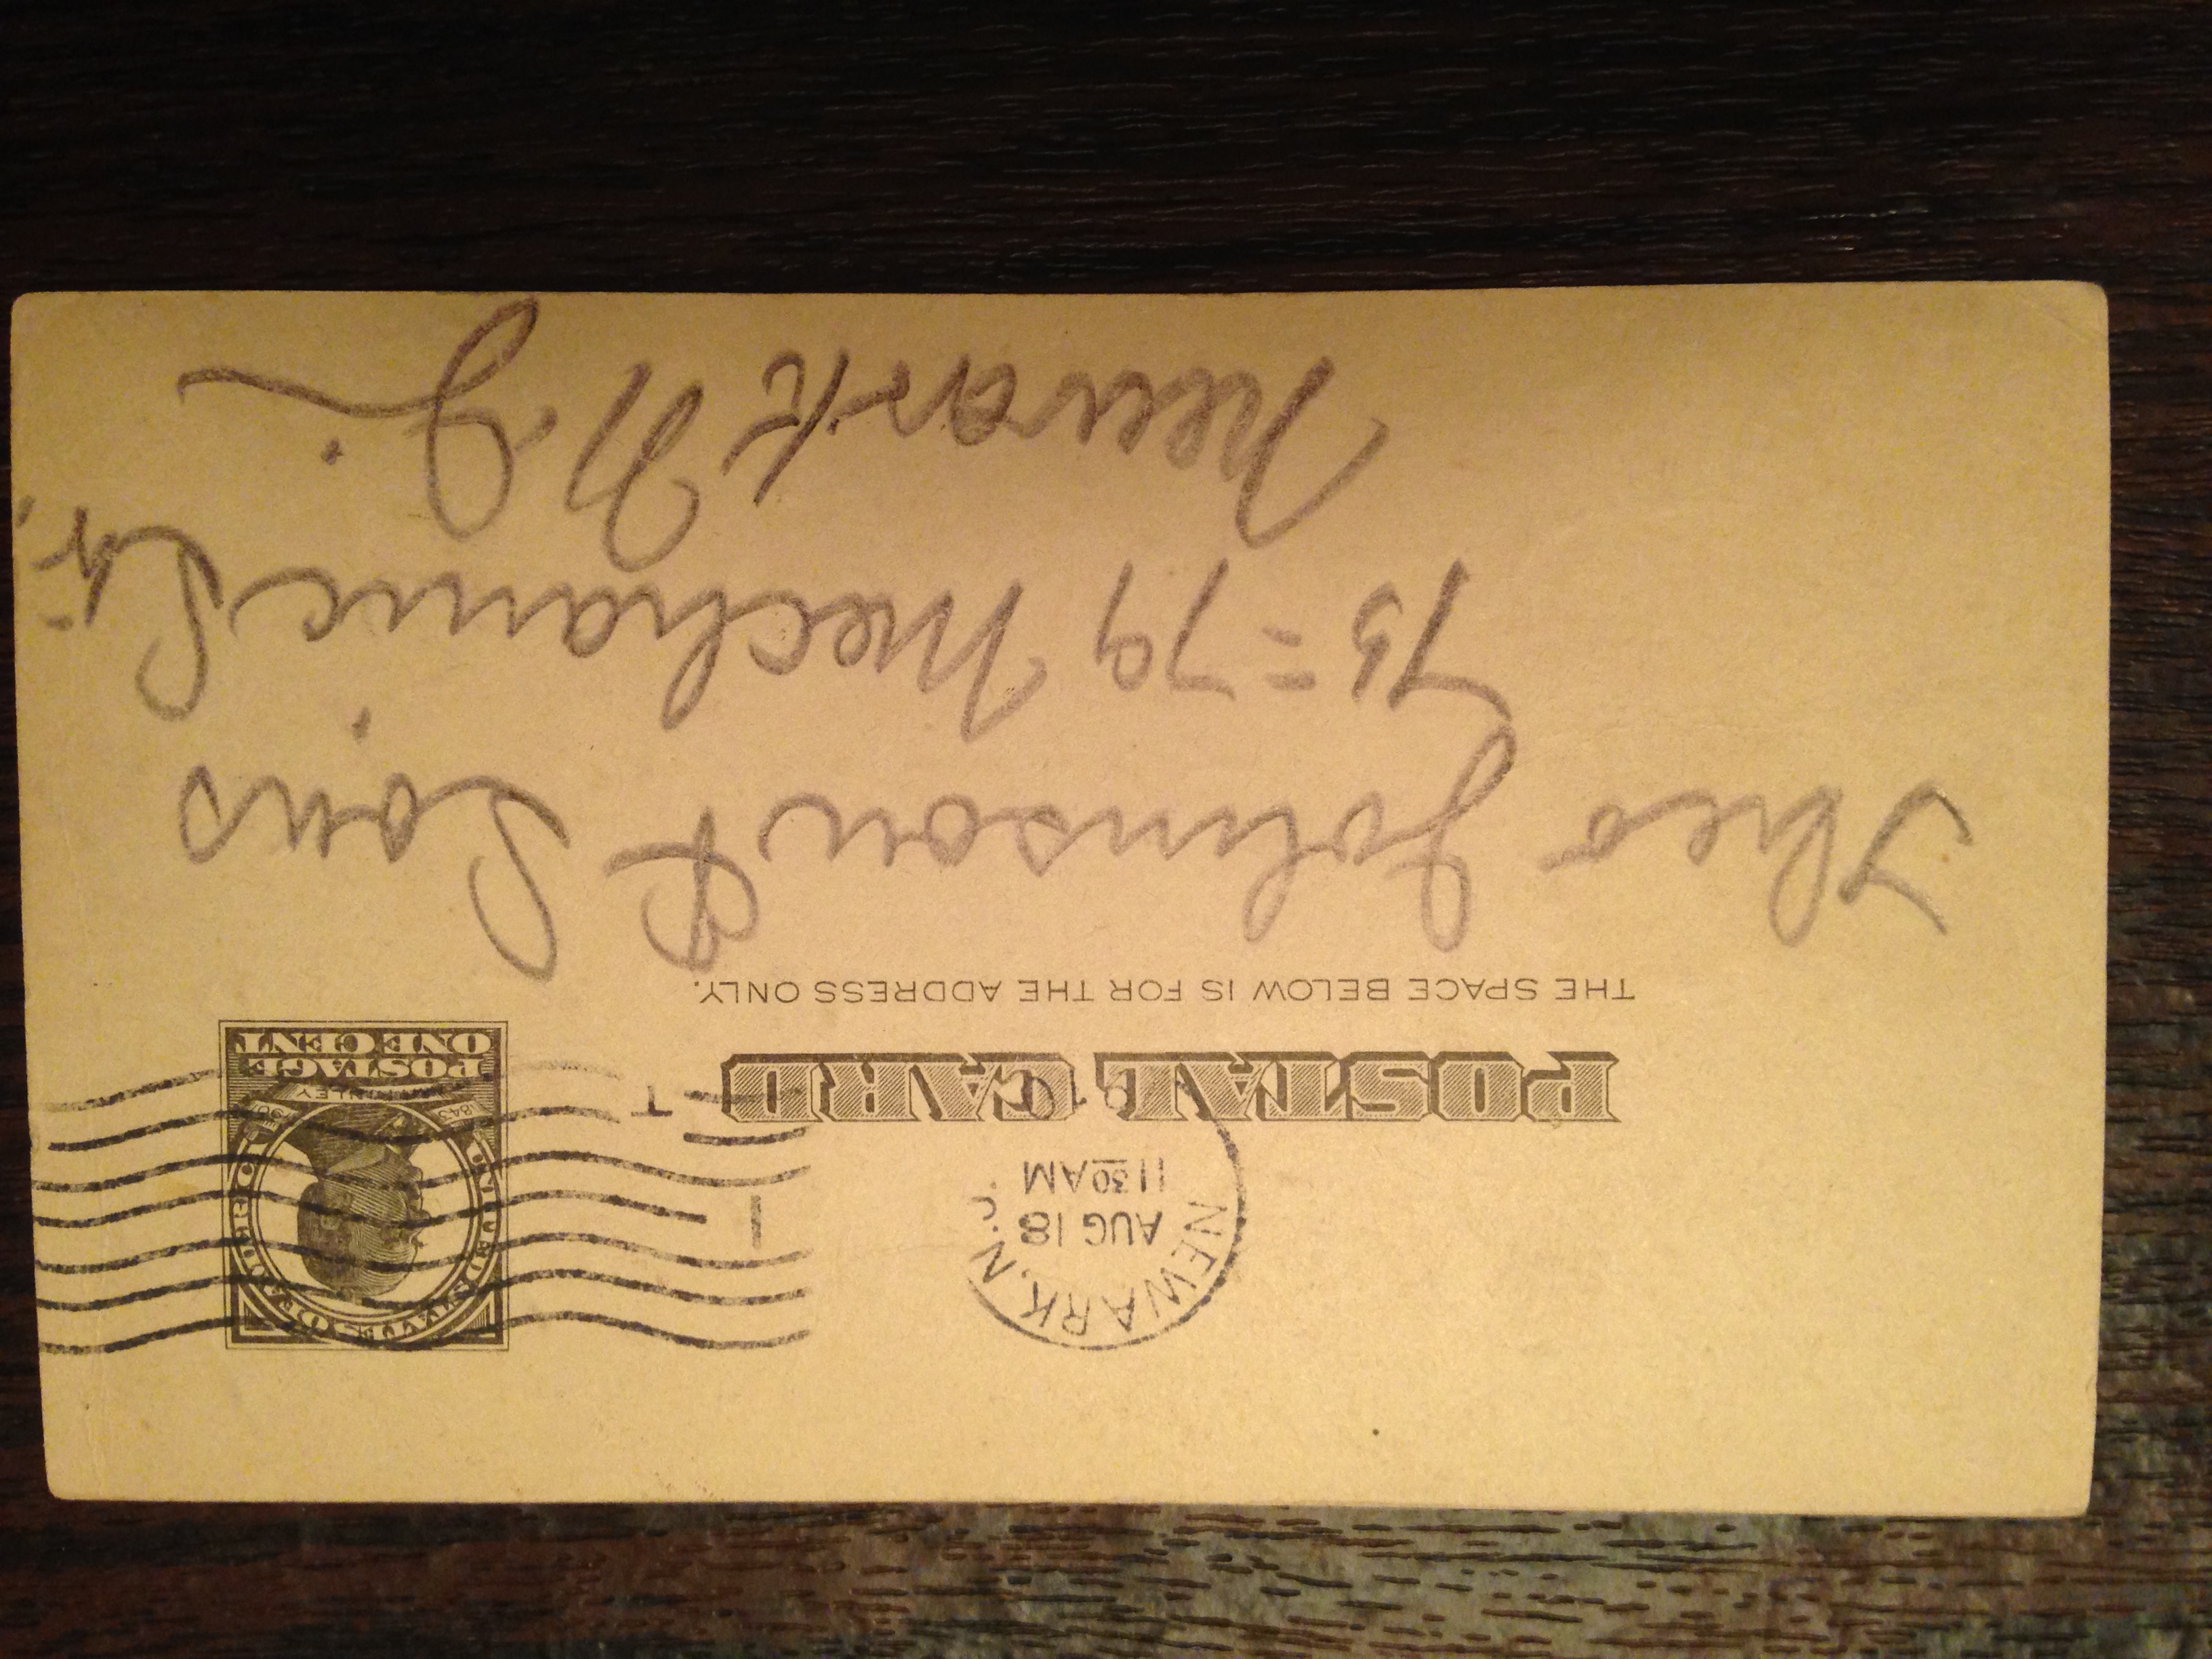 POSTAL CARD
THE SPACE BELOW IS FOR THE ADDRESS ONLY.
NEWARK, N.J.
AUG 18
11 30 AM
191
T
1
SERIES OF
1843 McKINLEY 1901
POSTAGE
ONE CENT
Theo Johnson & Sons
75=79 Mechanic St.
Newark N.J.